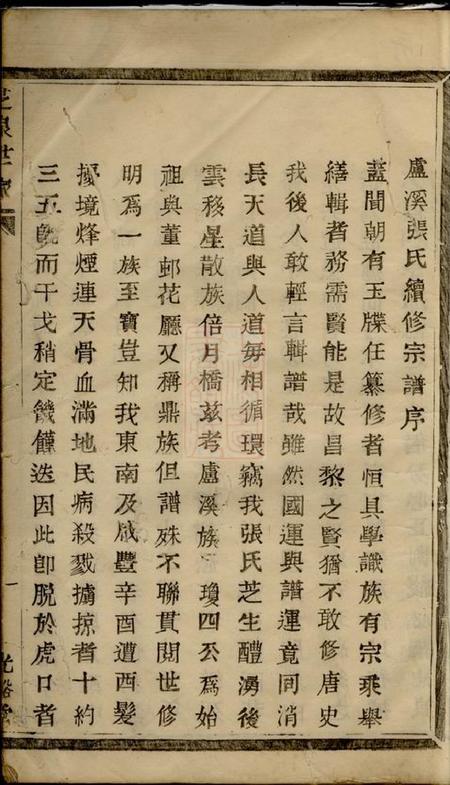 盧溪張氏續修宗譜序
蓋聞朝有玉牒任纂修者恒具學識族有宗乘舉
繕輯者務需賢能是故昌黎之賢猶不敢修唐史
我後人敢輕言輯譜哉雖然國運與譜運竟同消
長天道與人道每相循環竊我張氏芝生醴湧後
雲移星散族倍月橋茲考盧溪族 瓊四公爲始
祖與董邨花廳又稱鼎族但譜殊不聯貫閱世修
明爲一族至寶豈知我東南及咸豐辛酉遭西髮
擾境烽煙連天骨血滿地民病殺戮擄掠者十約
三五旣而干戈稍定饑饉迭因此卽脫於虎口者
芝泉世家
一
光裕堂